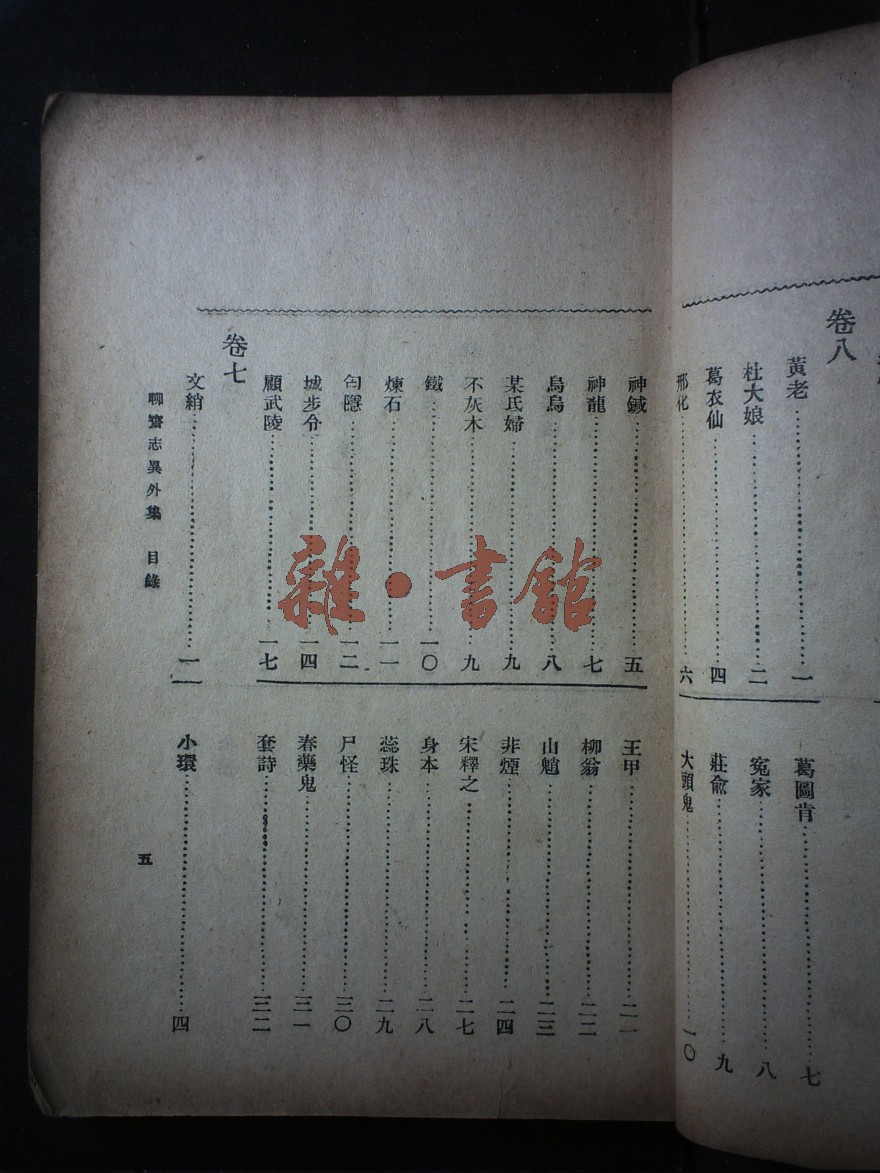 神鋮……五
神龍……七
烏烏……八
某氏婦……九
不灰木……九
鐵……一〇
煉石……一一
匄隱……一二
城步令……一四
顧武陵……一七
王甲……二一
柳翁……二二
山魈……二三
非煙……二四
宋釋之……二七
身本……二八
蕊珠……二九
尸怪……三〇
春藥鬼……三一
套詩……三二
卷七
文綃……一
小環……四
聊齋志異外集 目錄
五
卷八
黃老……一
杜大娘……二
葛衣仙……四
邢化……六
葛圖肯……七
冤家……八
莊俞……九
大頭鬼……一〇
雜·書館